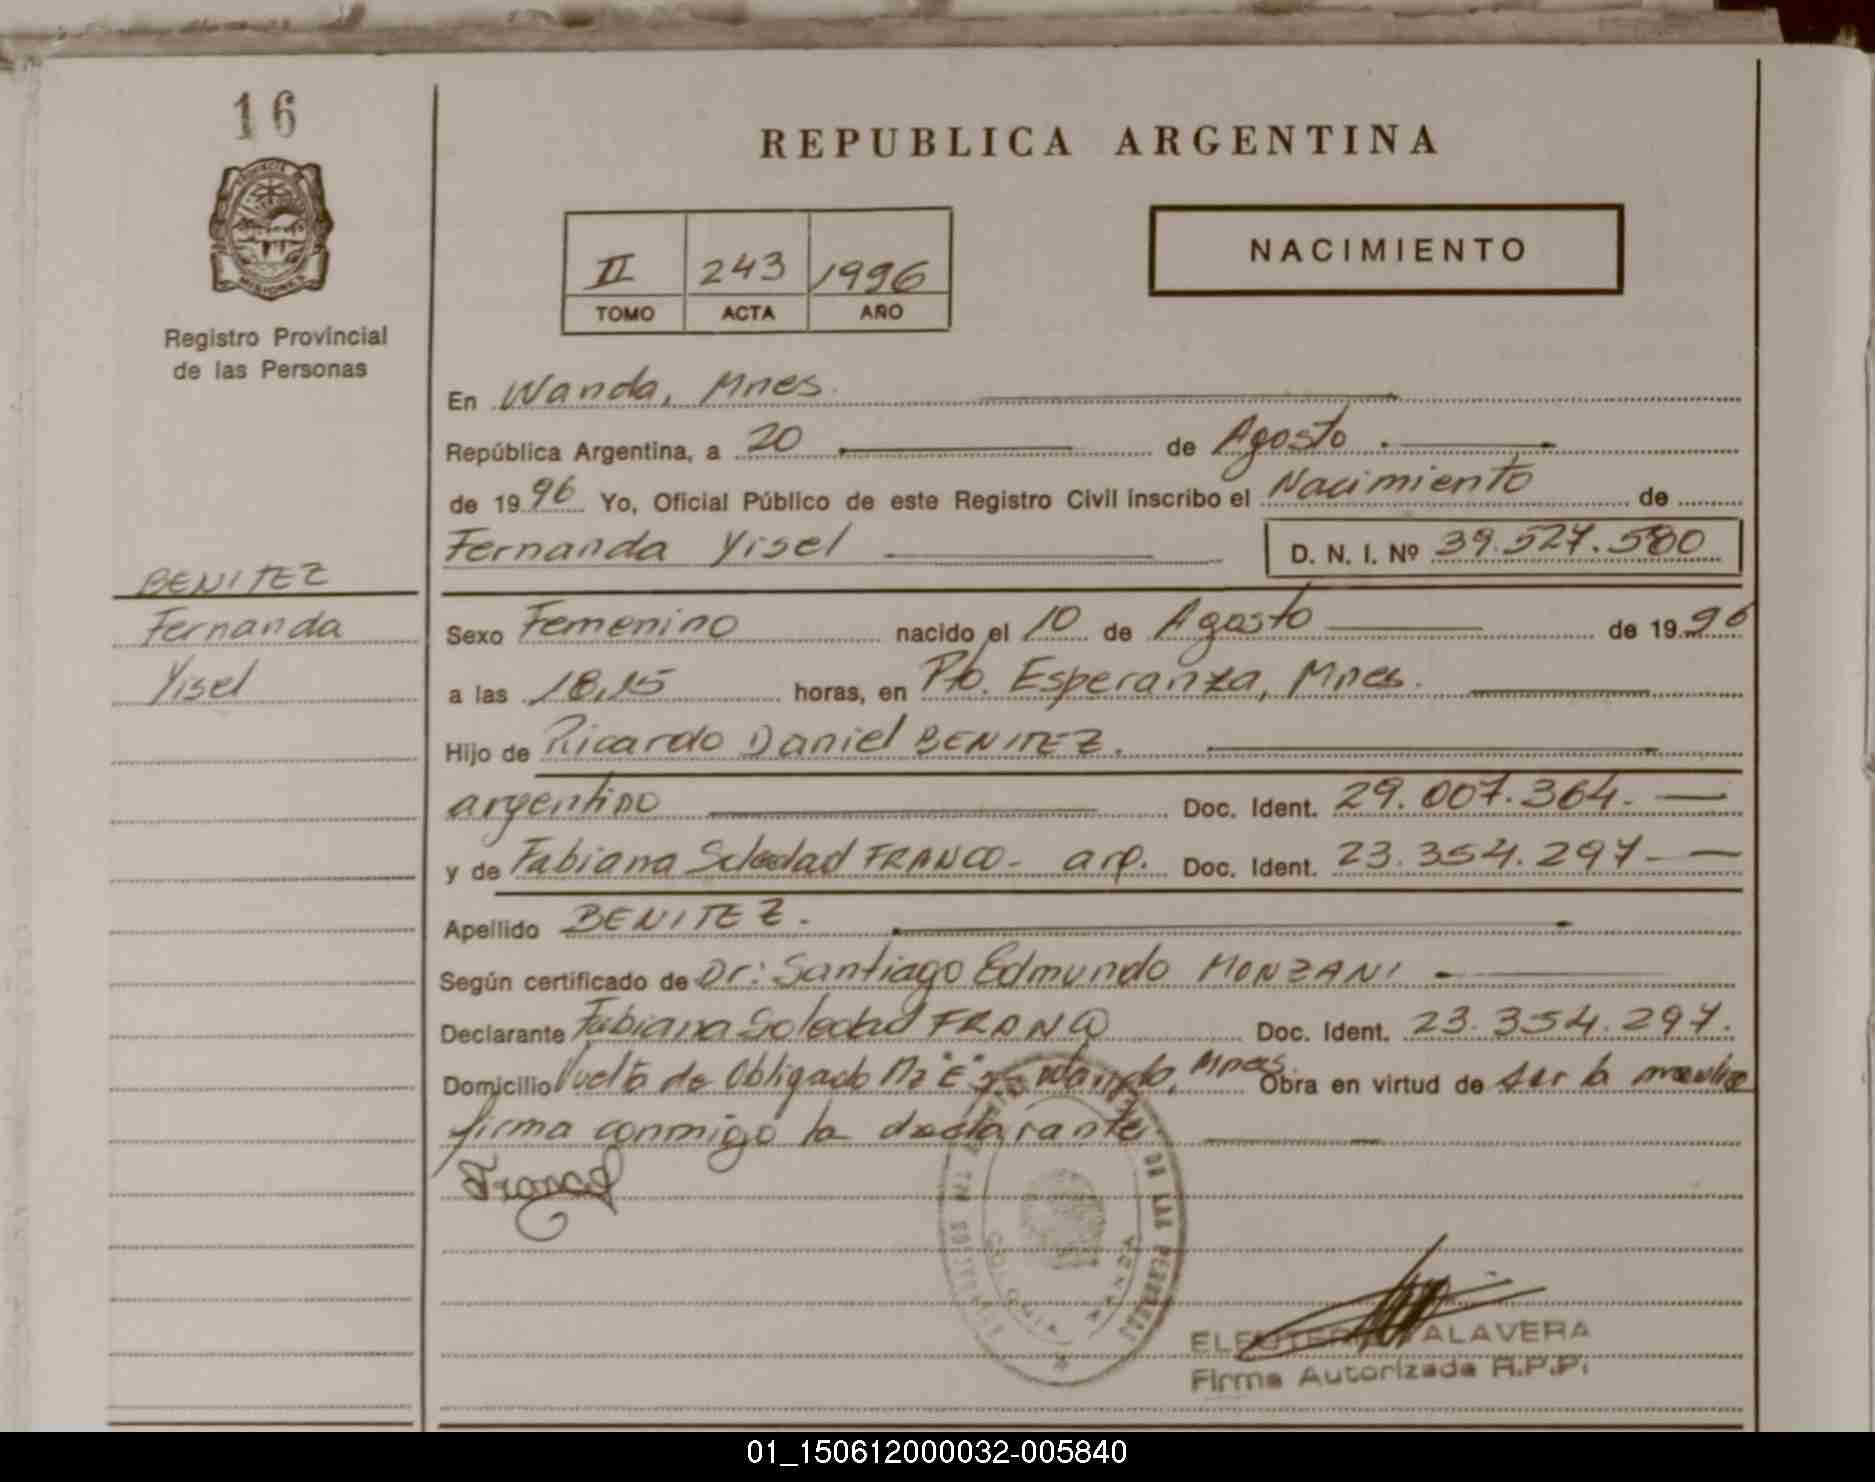 16
Registro Provincial
de las Personas
BENITEZ
Fernanda
Yisel
REPUBLICA ARGENTINA
II 243 1996
TOMO ACTA AÑO
NACIMIENTO
En Wanda, Mnes.
República Argentina, a 20 de Agosto
de 1996 Yo, Oficial Público de este Registro Civil inscribo el Nacimiento de
Fernanda Yisel D. N. I. Nº 39.527.580
Sexo Femenino nacido el 10 de Agosto de 1996
a las 18,15 horas, en Pto. Esperanza, Mnes.
Hijo de Ricardo Daniel BENITEZ.
argentino Doc. Ident. 29.007.364.
y de Fabiana Soledad FRANCO - arg. Doc. Ident. 23.354.297
Apellido BENITEZ.
Según certificado de Dr: Santiago Edmundo MONZANI
Declarante Fabiana Soledad FRANCO Doc. Ident. 23.354.297.
Domicilio Vuelta de Obligado Mz "E" Wanda, Mnes. Obra en virtud de ser la madre
firma conmigo la declarante
Franco
DE LAS PERSONAS
WANDA
ALAVERA
Firma Autorizada R.P.P.
01_150612000032-005840